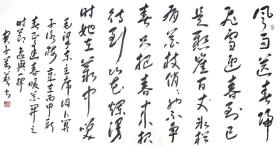 风雨送春归
飞雪迎春到已
是悬崖百丈冰犹
有花枝俏俏也不争
春只把春来报
待到山花烂漫
时她在丛中笑
毛泽东主席词卜算
子咏梅